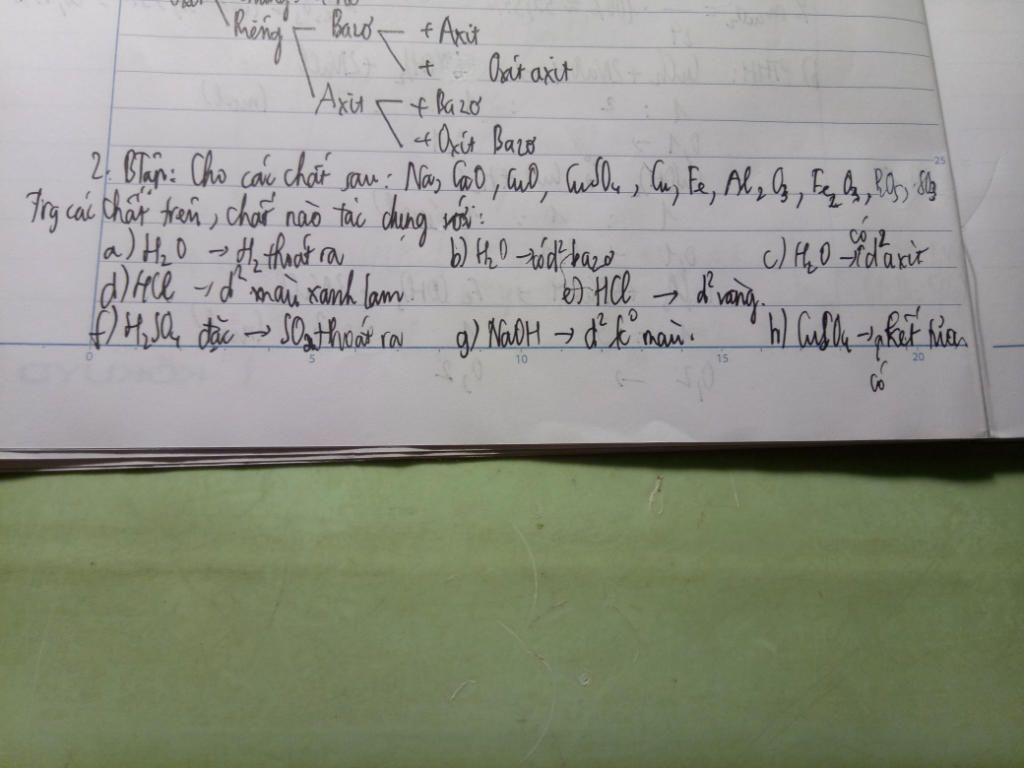 Riêng Bazơ + Axit
+ Oxit axit
Axit + Bazơ
+ Oxit Bazơ
2. BTập: Cho các chất sau: Na, CaO, CuO, CuSO4, Cu, Fe, Al2O3, Fe2O3, P2O5, SO3
Trg các chất trên, chất nào tác dụng với:
a) H2O → H2 thoát ra b) H2O → có d² bazơ c) H2O → có d² axit
d) HCl → d² màu xanh lam e) HCl → d² vàng.
f) H2SO4 đặc → SO2 thoát ra g) NaOH → d² k⁰ màu. h) CuSO4 → có kết tủa
0 5 10 15 20 25